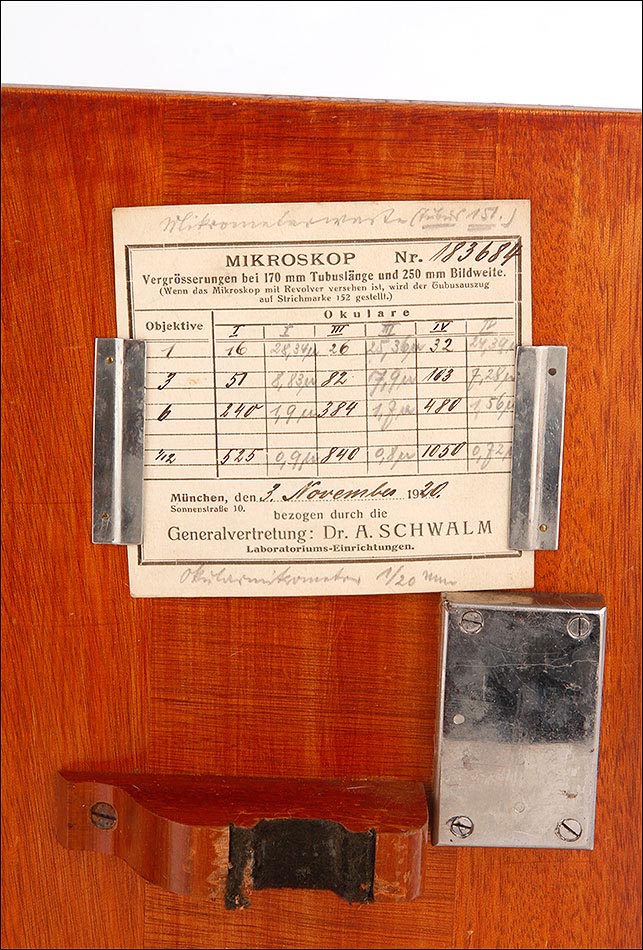 Mikrometerwerte (Tubus 151.)
MIKROSKOP Nr. 183684
Vergrösserungen bei 170 mm Tubuslänge und 250 mm Bildweite.
(Wenn das Mikroskop mit Revolver versehen ist, wird der Tubusauszug
auf Strichmarke 152 gestellt.)
Objektive Okulare
I I III III IV IV
1 16 28,34µ 26 25,36µ 32 24,39µ
3 51 8,83µ 82 7,9µ 103 7,28µ
6 240 1,9µ 384 1,7µ 480 1,56µ
1/12 525 0,9µ 840 0,8µ 1050 0,72µ
München, den 3. November 1920.
Sonnenstraße 10.
bezogen durch die
Generalvertretung: Dr. A. SCHWALM
Laboratoriums-Einrichtungen.
Okularmikrometer 1/20 mm